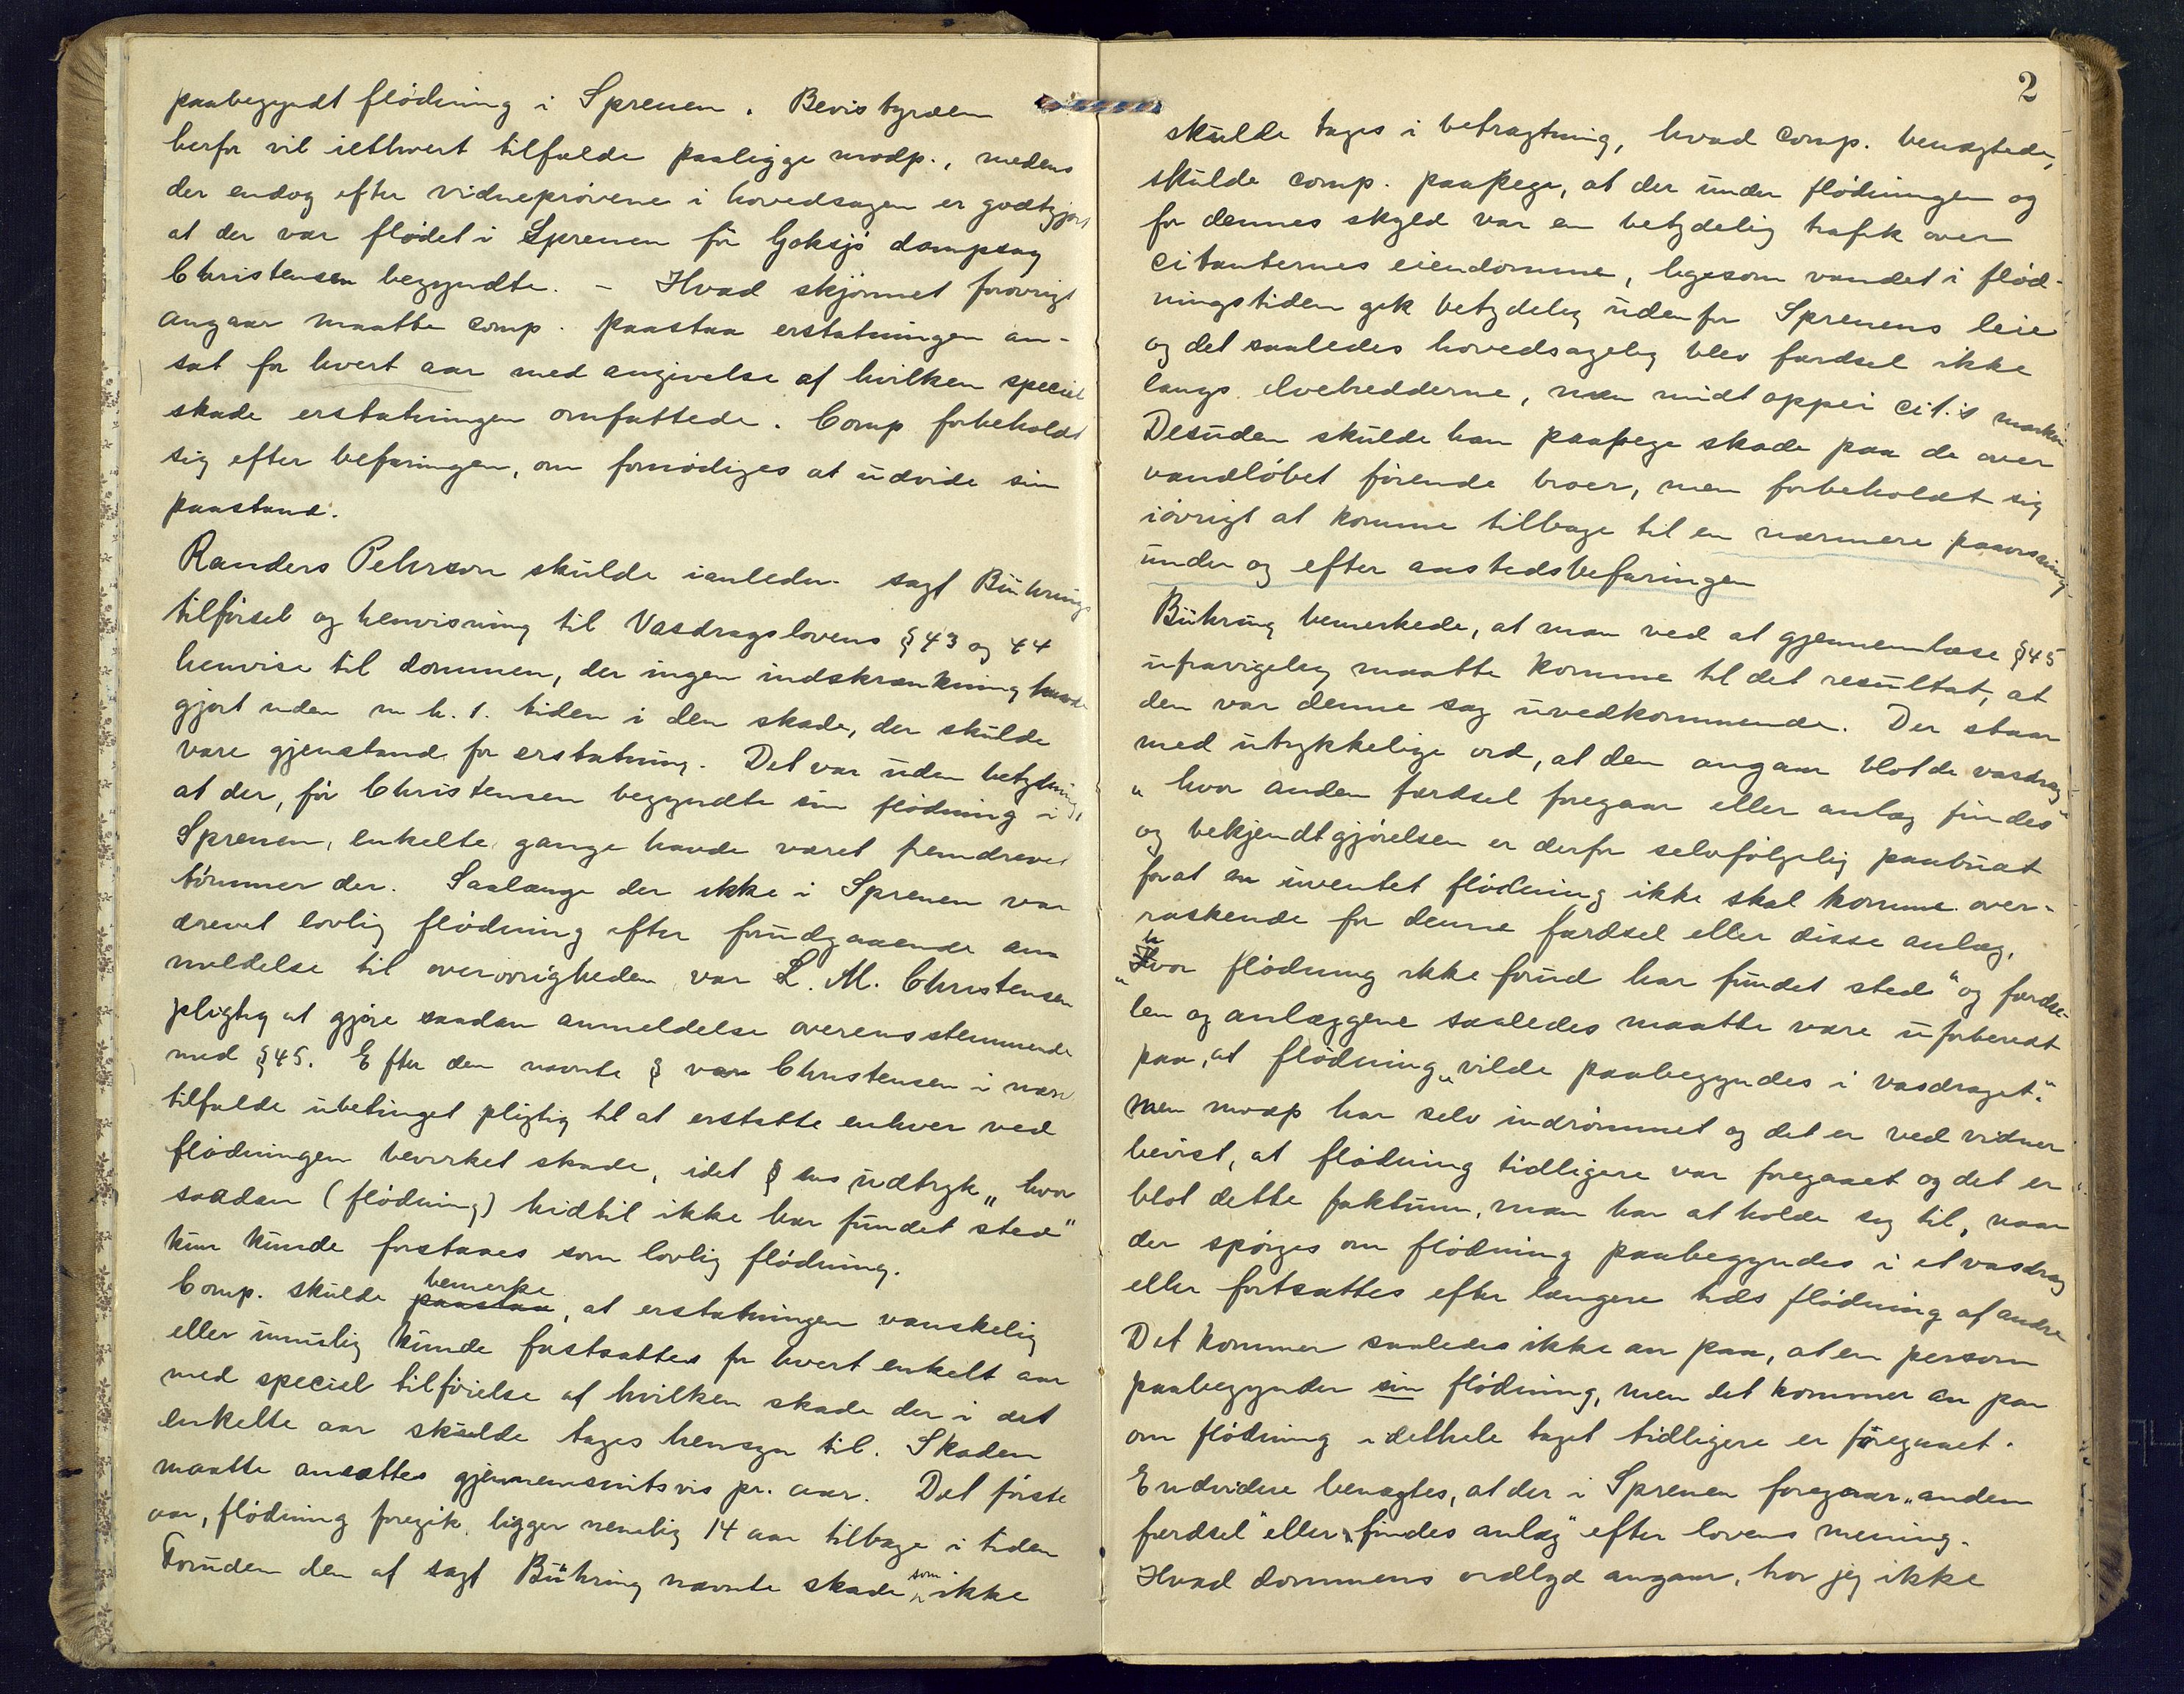 paabegyndt flödning i Sprenen. Bevisbyrden
herfor vil iethvert tilfælde paaligge modp., medens
der endog efter vidneprövene i hovedsagen er godtgjort
at der var flödet i Sprenen för Goksjö dampsag
Christensen begyndte. – Hvad skjönnet forövrigt
angaar maatte comp. paastaa erstatningen an-
sat for hvert aar med angivelse af hvilken speciel
skade erstatningen omfattede. Comp forbeholdt
sig efter befaringen, om fornödiges at udvide sin
paastand.
Randers Pehrson skulde ianledn. sagf Bührings
tilförsel og henvisning til Vasdragslovens § 43 og 44
henvise til dommen, der ingen indskrænkning havde
gjort uden m. h. t. tiden i den skade, der skulde
være gjenstand for erstatning. Det var uden betydning,
at der, för Christensen begyndte sin flödning i
Sprenen, enkelte gange havde været fremdrevet
tömmer der. Saalænge der ikke i Sprenen var
drevet lovlig flödning efter forudgaaende an-
meldelse til overövrigheden var L. M. Christensen
pligtig at gjöre saadan anmeldelse overensstemmende
med § 45. Efter den nævnte § var Christensen i nærv
tilfælde ubetinget pligtig til at erstatte enhver ved
flödningen bevirket skade, idet § ens udtryk „hvor
saadan (flödning) hidtil ikke har fundet sted"
kun kunde forstaaes som lovlig flödning.
bemerke
Comp. skulde paastaa, at erstatningen vanskelig
eller umulig kunde fastsættes for hvert enkelt aar
med speciel tilföielse af hvilken skade der i det
enkelte aar skulde tages hensyn til. Skaden
maatte ansættes gjennemsnitsvis pr. aar. Det förste
aar, flödning foregik, ligger nemlig 14 aar tilbage i tiden
Foruden den af sagf Bühring nævnte skade som ikke
2
skulde tages i betragtning, hvad comp. benægtede,
skulde comp. paapege, at der under flödningen og
for dennes skyld var en betydelig trafik over
citanternes eiendomme, ligesom vandet i flöd-
ningstiden gik betydelig udenfor Sprenens leie
og det saaledes hovedsagelig blev færdsel ikke
langs elvebredderne, men midt oppei cit.'s marker
Desuden skulde han paapege skade paa de over
vandlöbet förende broer, men forbeholdt sig
iövrigt at komme tilbage til en nærmere paavisning
under og efter aastedsbefaringen
Bühring bemerkede, at man ved at gjennemlæse § 45
ufravigelig maatte komme til det resultat, at
den var denne sag uvedkommende. Der staar
med utrykkelige ord, at den angaar blot de vasdrag
„hvor anden færdsel foregaar eller anlæg findes"
og bekjendtgjörelsen er derfor selvfölgelig paabudt
forat en uventet flödning ikke skal komme over-
raskende for denne færdsel eller disse anlæg,
„hvor flödning ikke forud har fundet sted" og færdse-
len og anlæggene saaledes maatte være uforberedt
paa, at flödning „vilde paabegyndes i vasdraget."
Men modp har selv indrömmet og det er ved vidner
bevist, at flödning tidligere var foregaaet og det er
blot dette faktum, man har at holde sig til, naar
der spörges om flödning paabegyndes i et vasdrag
eller fortsættes efter længere tids flödning af andre
Det kommer saaledes ikke an paa, at en person
paabegynder sin flödning, men det kommer an paa
om flödning idethele taget tidligere er foregaaet.
Endvidere benægtes, at der i Sprenen foregaar „anden
færdsel" eller „findes anlæg" efter lovens mening.
Hvad dommens ordlyd angaar, har jeg ikke